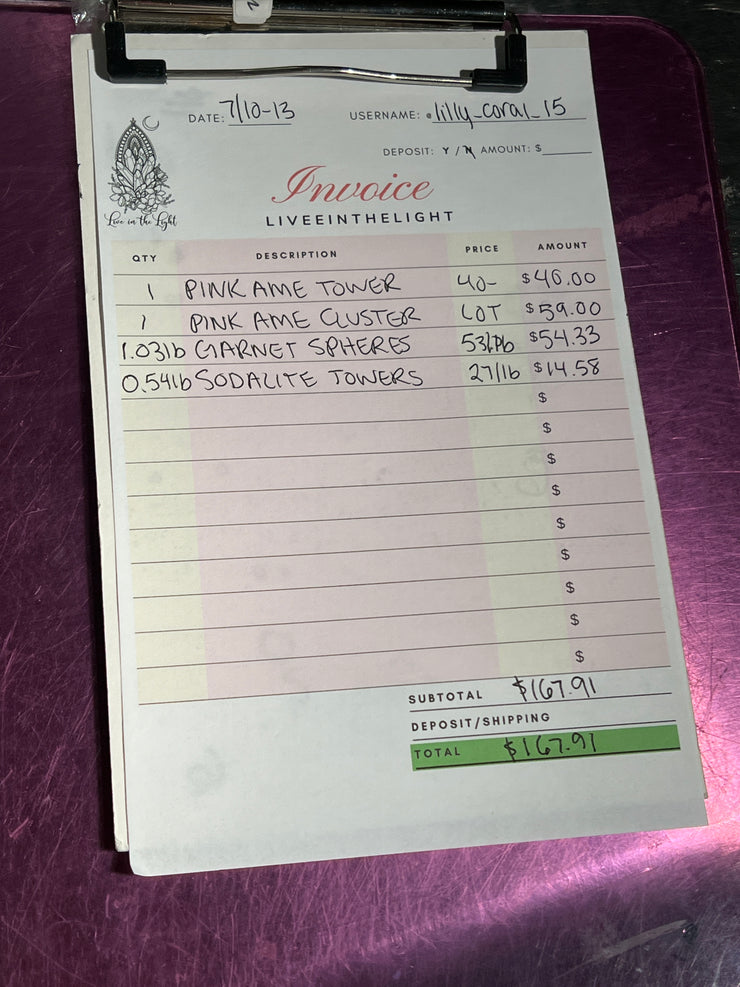 DATE: 7/10-13 USERNAME: @lilly_coral_15
DEPOSIT: Y / N AMOUNT: $
Live in the Light
Invoice
LIVEEINTHELIGHT
QTY DESCRIPTION PRICE AMOUNT
1 PINK AME TOWER 40- $40.00
1 PINK AME CLUSTER LOT $59.00
1.03lb GARNET SPHERES $54.33
0.54lb SODALITE TOWERS 27/lb $14.58
$
$
$
$
$
$
$
$
$
SUBTOTAL $167.91
DEPOSIT/SHIPPING
TOTAL $167.91